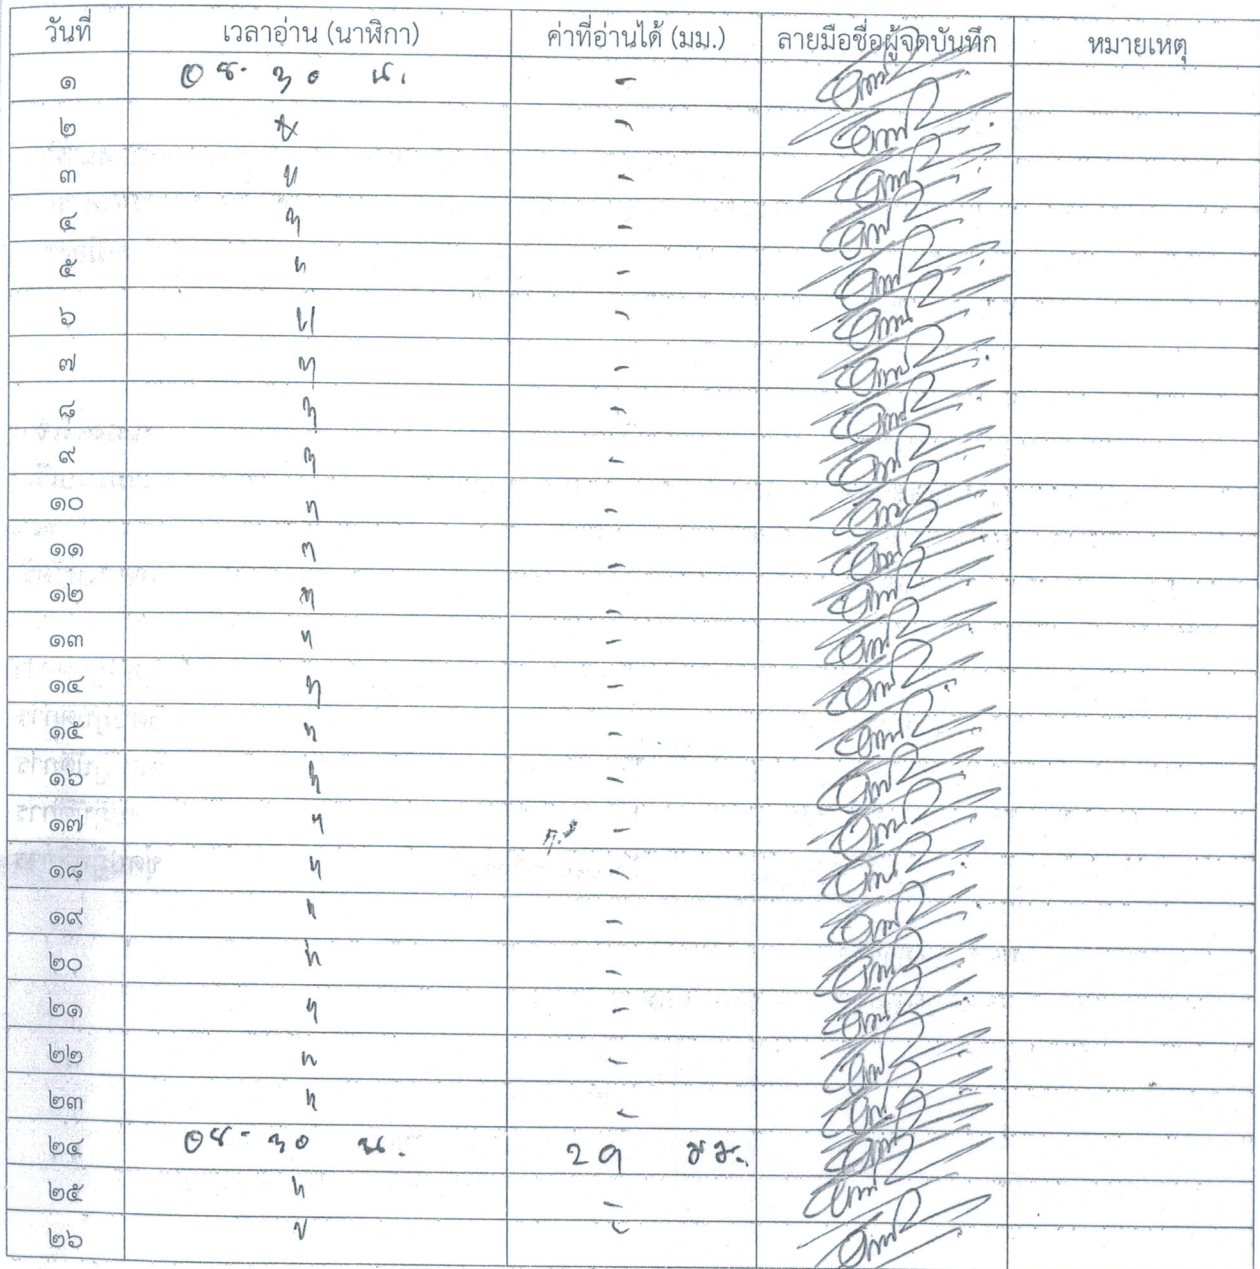 วันที่ เวลาอ่าน (นาฬิกา) ค่าที่อ่านได้ (มม.) ลายมือชื่อผู้จดบันทึก หมายเหตุ
๑ 08.30 น. -
๒ " -
๓ " -
๔ " -
๕ " -
๖ " -
๗ " -
๘ " -
๙ " -
๑๐ " -
๑๑ " -
๑๒ " -
๑๓ " -
๑๔ " -
๑๕ " -
๑๖ " -
๑๗ " -
๑๘ " -
๑๙ " -
๒๐ " -
๒๑ " -
๒๒ " -
๒๓ " -
๒๔ 08.30 น. 29 มม.
๒๕ " -
๒๖ " -